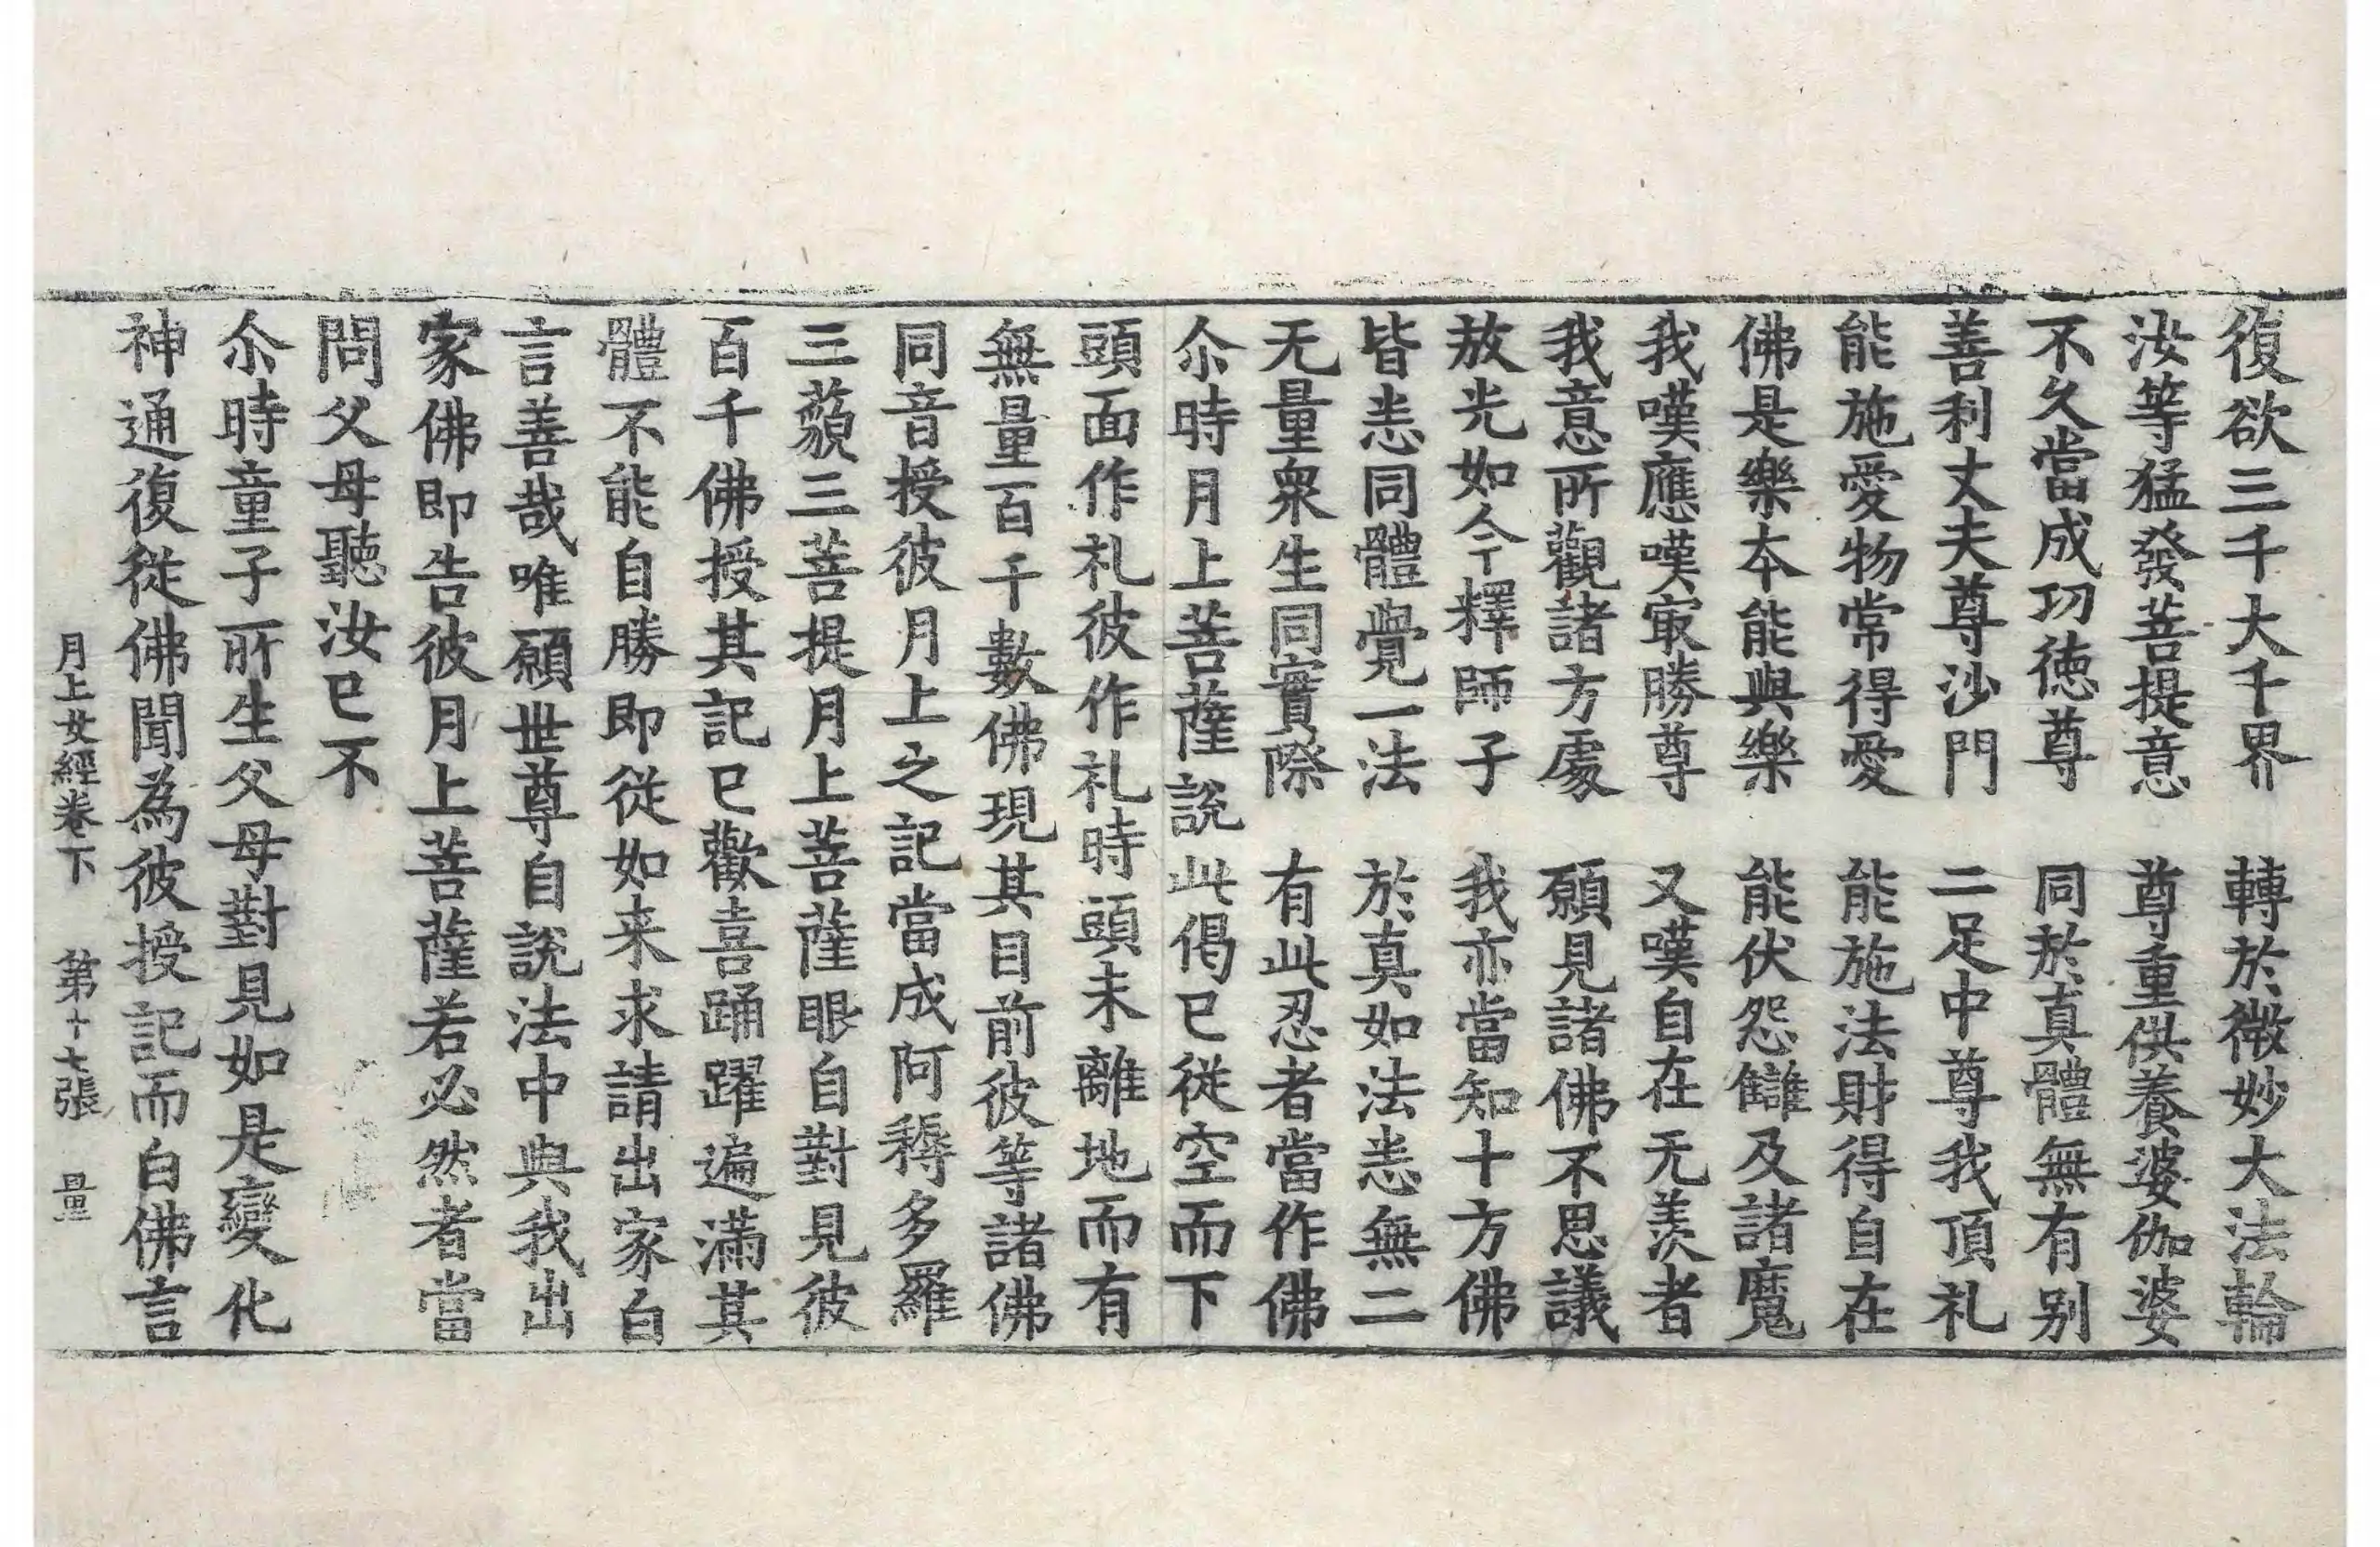 復欲三千大千界　轉於微妙大法輪
汝等猛發菩提意　尊重供養婆伽婆
不久當成㓛德尊　同於真體無有别
善利丈夫尊沙門　二足中尊我頂礼
能施愛物常得愛　能施法財得自在
佛是樂本能與樂　能伏怨讎及諸魔
我嘆應嘆冣勝尊　又嘆自在无羨者
我意所觀諸方處　願見諸佛不思議
放光如今釋師子　我亦當知十方佛
皆悉同體覺一法　於真如法悉無二
无量衆生同實際　有此忍者當作佛
尒時月上菩薩說此偈已從空而下
頭面作礼彼作礼時頭未離地而有
無量百千數佛現其目前彼等諸佛
同音授彼月上之記當成阿耨多羅
三藐三菩提月上菩薩眼自對見彼
百千佛授其記已歡喜踊躍遍滿其
體不能自勝即從如来求請出家白
言善哉唯願世尊自說法中與我出
家佛即告彼月上菩薩若必然者當
問父母聽汝已不
尒時童子所生父母對見如是變化
神通復從佛聞為彼授記而白佛言
月上女經卷下　第十七張　量